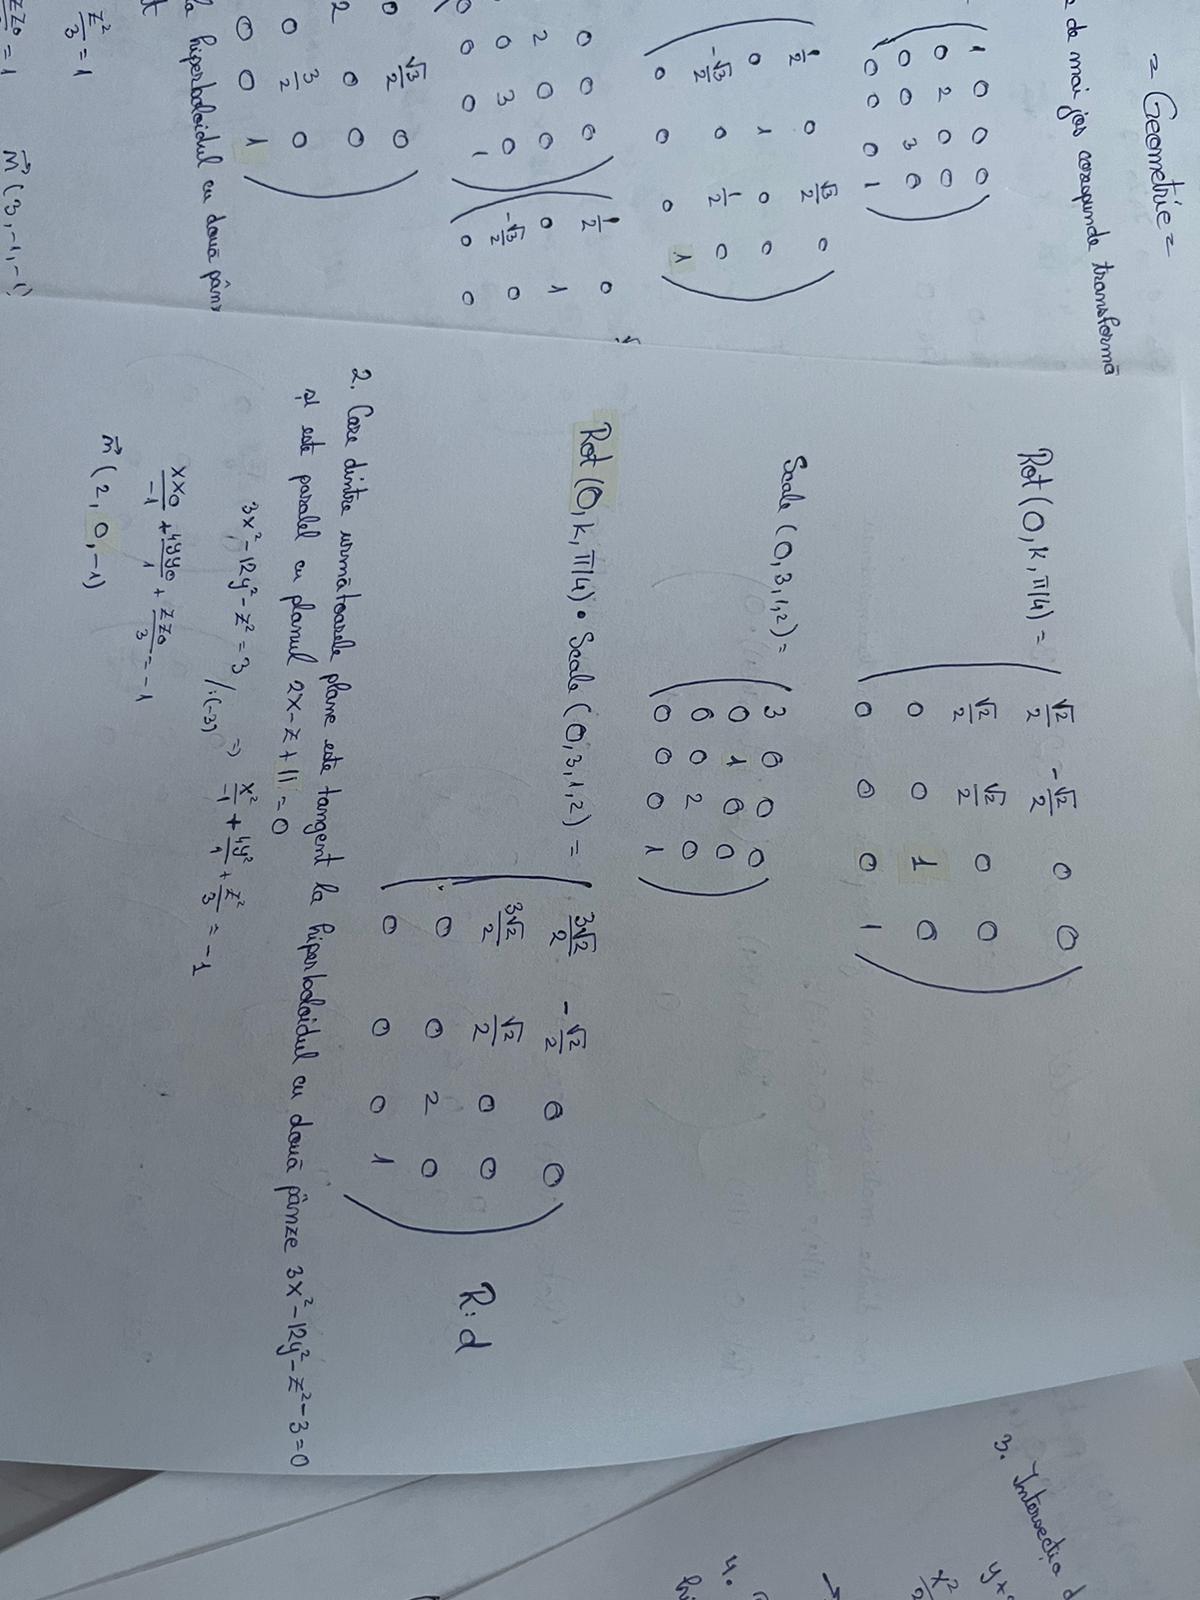 = Geometrie =
de mai jos corespunde transformă
1 0 0 0
0 2 0 0
0 0 3 0
0 0 0 1
1/2 0 √3/2 0
0 1 0 0
-√3/2 0 1/2 0
0 0 0 1
0 0 0
2 0 0
0 3 0
0 0 1
1/2 0
0 1
-√3/2 0
0 0
0 √3/2 0
2 0 0
0 3/2 0
0 0 1
la hiperboloidul cu două pân
z²/3 = 1
zz0 = 1
n⃗ (3, -1, -1)
Rot (O, k, π/4) =
√2/2 -√2/2 0 0
√2/2 √2/2 0 0
0 0 1 0
0 0 0 1
Scale (O, 3, 1, 2) =
3 0 0 0
0 1 0 0
0 0 2 0
0 0 0 1
Rot (O, k, π/4) • Scale (O, 3, 1, 2) =
3√2/2 -√2/2 0 0
3√2/2 √2/2 0 0
0 0 2 0
0 0 0 1
R: d
2. Care dintre următoarele plane este tangent la hiperboloidul cu două pânze 3x² - 12y² - z² - 3 = 0
și este paralel cu planul 2x - z + 11 = 0
3x² - 12y² - z² = 3 /:(-3) => x²/-1 + 4y²/1 + z²/3 = -1
xx0/-1 + 4yy0/1 + zz0/3 = -1
n⃗ (2, 0, -1)
3. Intersecția d
y +
x²/2
4.